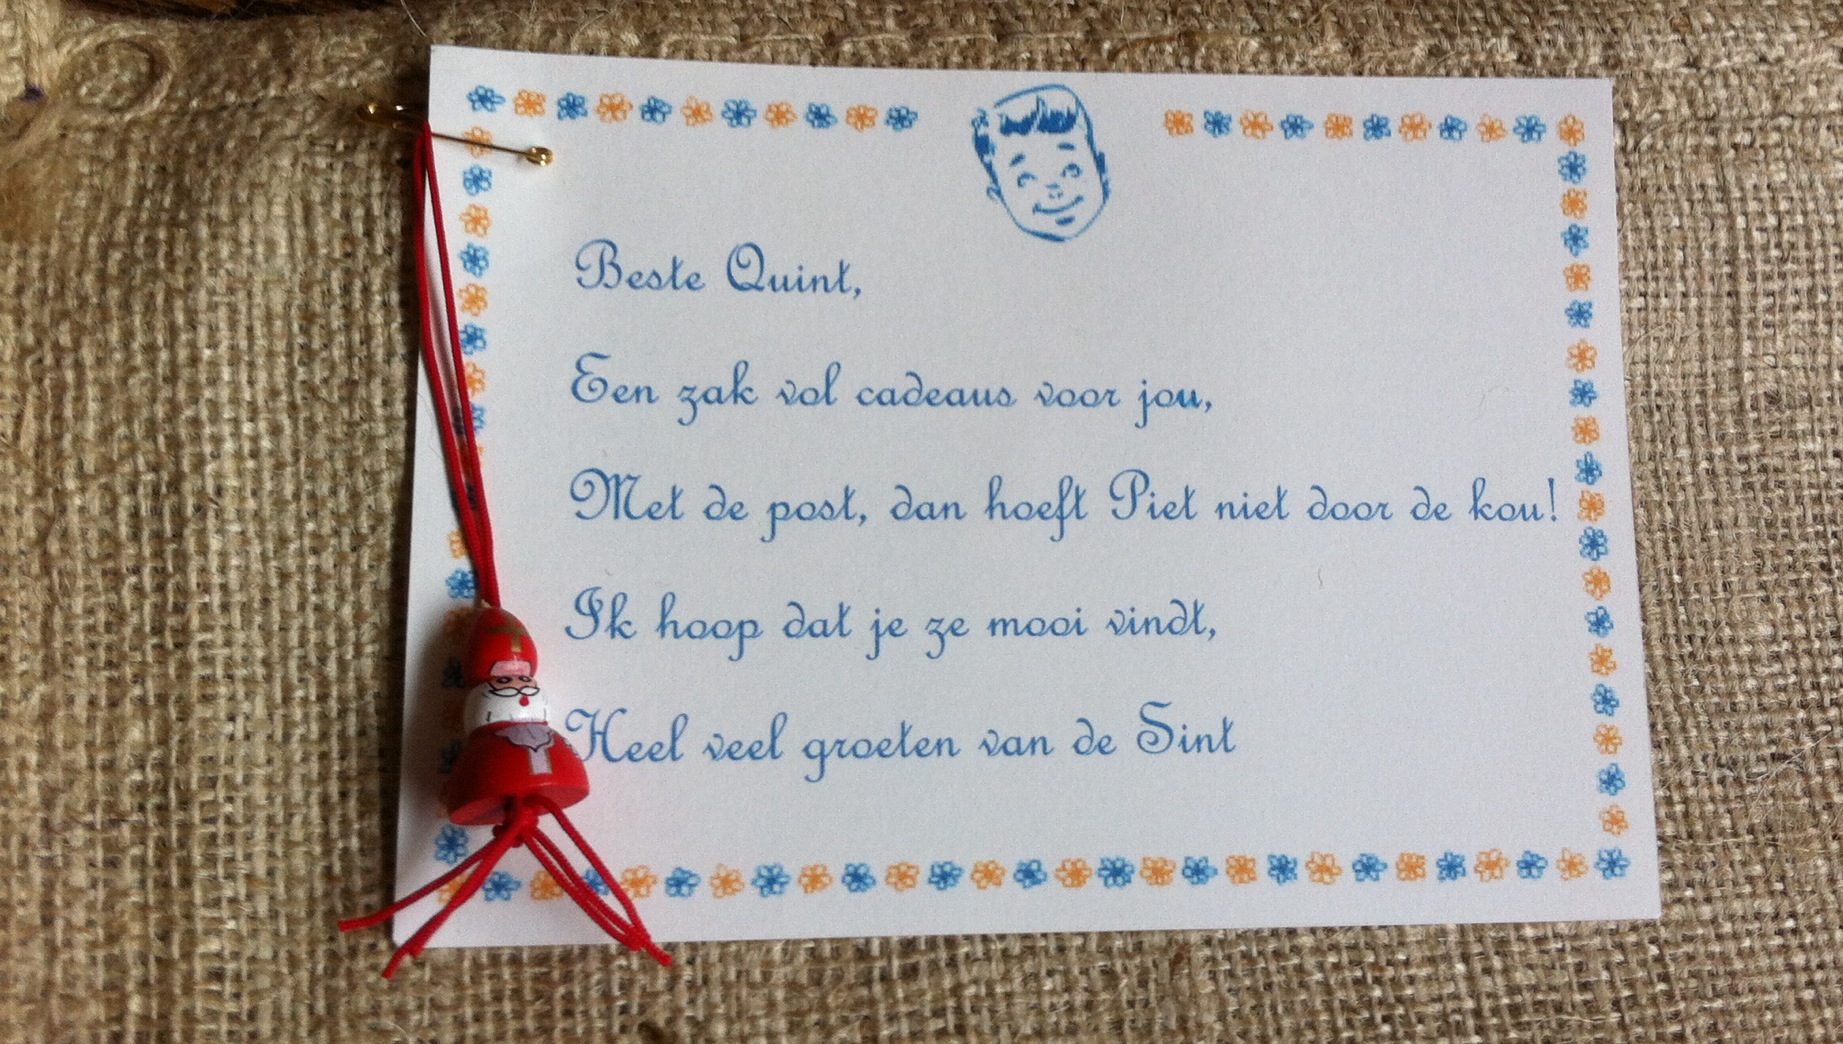 Beste Quint,
Een zak vol cadeaus voor jou,
Met de post, dan hoeft Piet niet door de kou!
Ik hoop dat je ze mooi vindt,
Heel veel groeten van de Sint